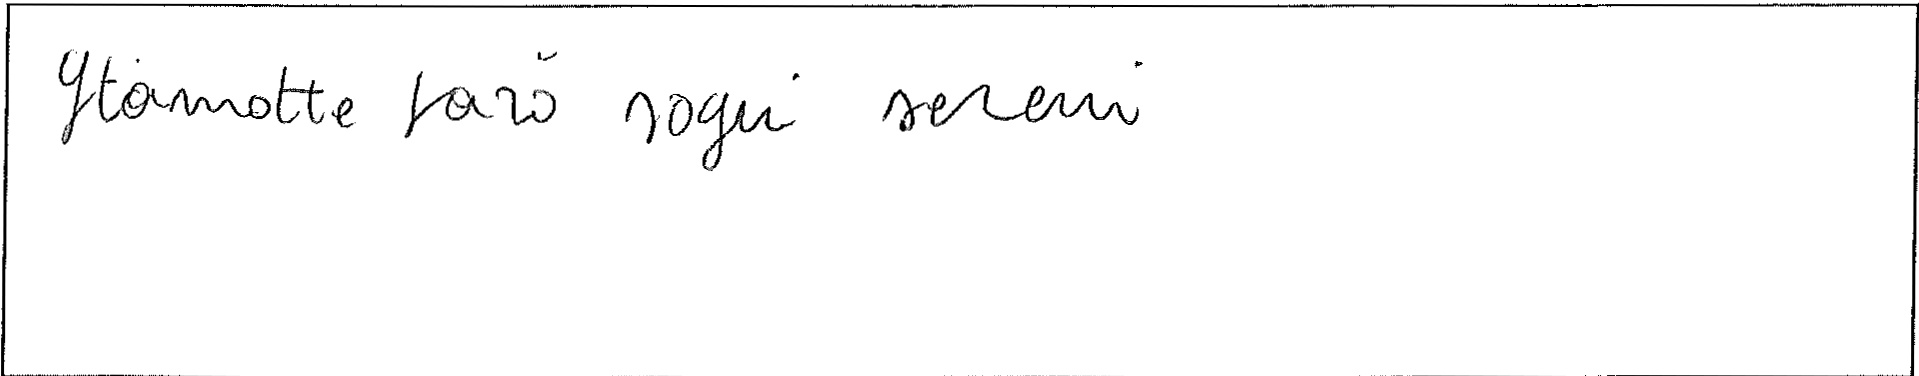 Stamotte farò sogni sereni